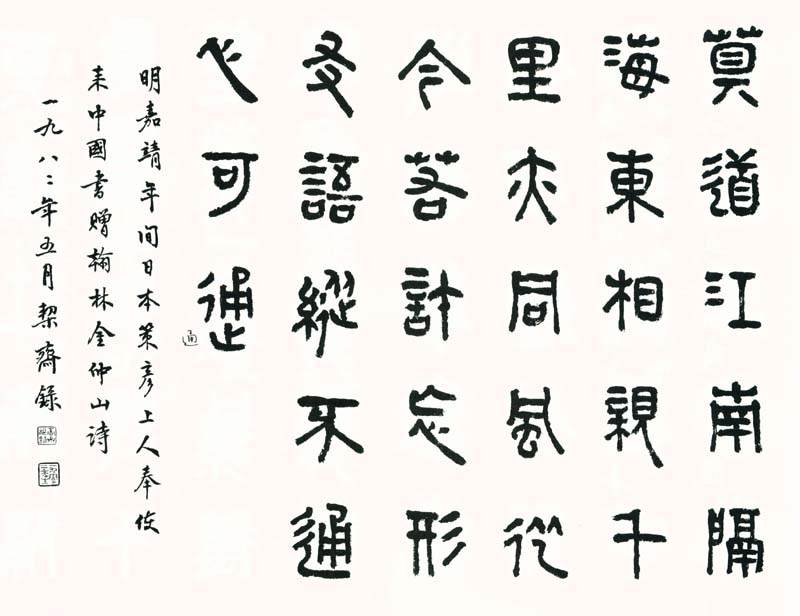 莫道江南隔
海東相親千
里亦同風從
今若許忘形
友語縱不通
心可通
通
明嘉靖年間日本策彦上人奉使
来中國書贈翰林金仲山詩
一九八二年五月契齋錄